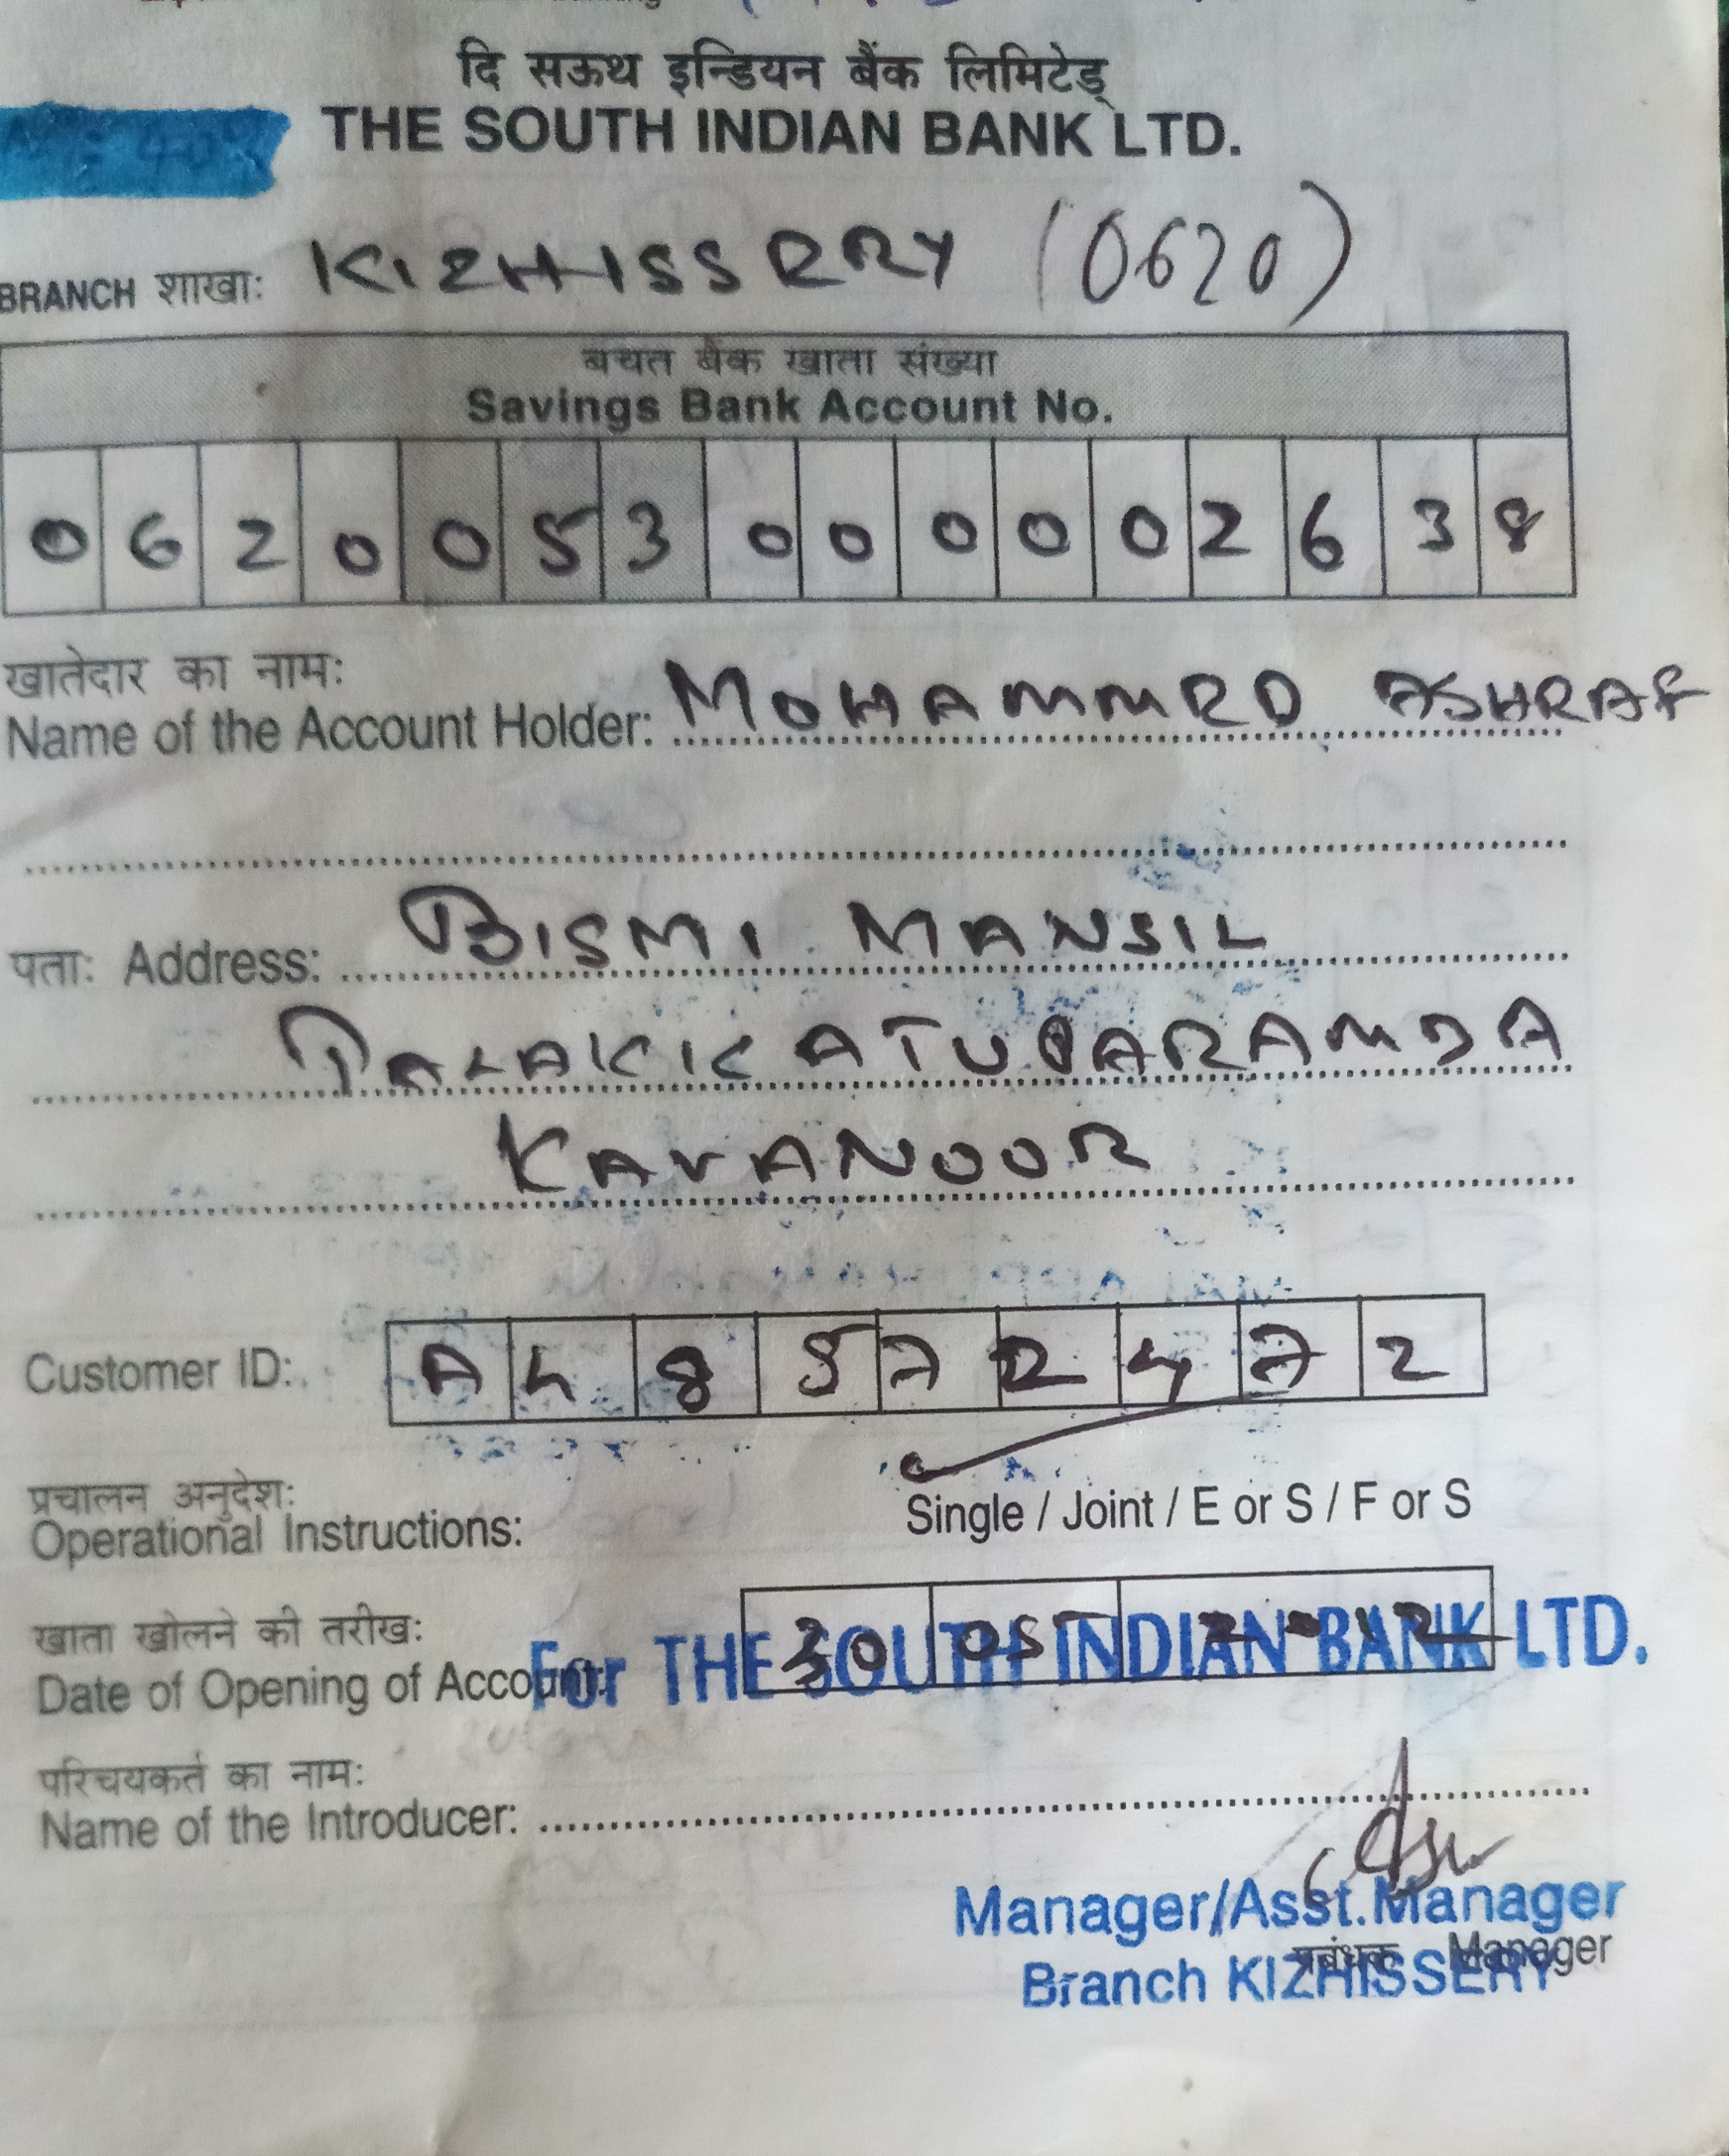 दि सऊथ इन्डियन बैंक लिमिटेड्
THE SOUTH INDIAN BANK LTD.
BRANCH शाखा: KIZHISSERY (0620)
बचत बैंक खाता संख्या
Savings Bank Account No.
0 6 2 0 0 5 3 0 0 0 0 0 2 6 3 8
खातेदार का नाम:
Name of the Account Holder: MOHAMMED ASHRAF
पता: Address: BISMI MANSIL
PALAKKATUPARAMBA
KAVANOOR
Customer ID: A 4 8 5 7 2 4 7 2
प्रचालन अनुदेश:
Operational Instructions: Single / Joint / E or S / F or S
खाता खोलने की तरीख:
Date of Opening of Account: 30 05 2012
For THE SOUTH INDIAN BANK LTD.
परिचयकर्त का नाम:
Name of the Introducer:
Manager/Asst.Manager
प्रबंधक Manager
Branch KIZHISSERY